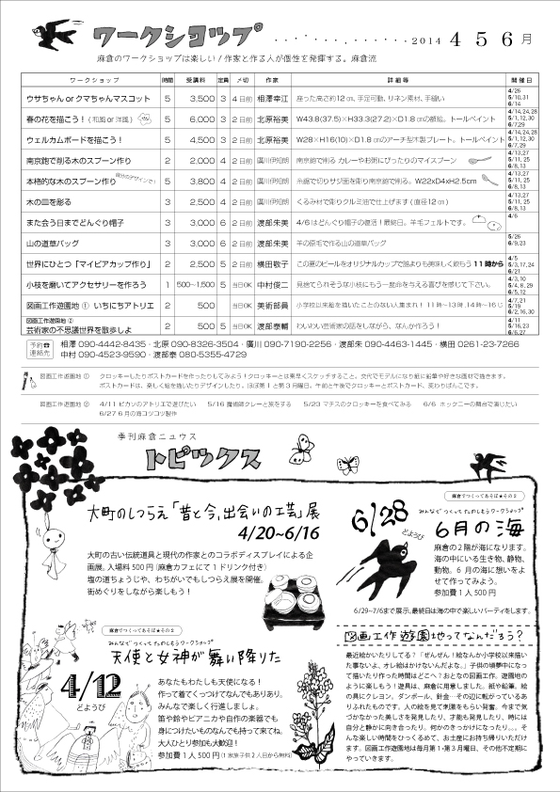 ワークショップ 2014 4 5 6月
麻倉のワークショップは楽しい！作家と作る人が個性を発揮する。麻倉流
ワークショップ 時間 受講料 定員 〆切 作家 詳細等 開催日
ウサちゃん or クマちゃんマスコット 5 3,500 3 4日前 相澤幸江 座った高さ約12㎝、手足可動、リネン素材、手縫い 4/26 5/10,31 6/14
春の花を描こう！（和風 or 洋風） 5 6,000 3 2日前 北原裕美 W43.8(37.5)×H33.3(27.2)×D1.8㎝の額絵。トールペイント 4/14,24,28 5/1,12,30 6/7,29
ウェルカムボードを描こう！ 5 4,500 3 2日前 北原裕美 W28×H16(10)×D1.8㎝のアーチ型木製プレート。トールペイント 4/14,24,28 5/1,12,30 6/7,29
南京鉋で削る木のスプーン作り 2 2,000 4 2日前 廣川伊知朗 南京鉋で削る カレーやお粥にぴったりのマイスプーン 4/13,27 5/11, 25 6/8,13
本格的な木のスプーン作り 自分のデザインで！ 5 3,800 4 2日前 廣川伊知朗 糸鋸で切りサジ面を彫り南京鉋で削る。W22xD4xH2.5cm 4/13,27 5/11, 25 6/8,13
木の皿を彫る 3 2,000 4 2日前 廣川伊知朗 くるみ材で彫りクルミ油で仕上げます（直径12㎝） 4/13,27 5/11, 25 6/8,13
また会う日までどんぐり帽子 3 3,000 6 2日前 渡部朱美 4/6はどんぐり帽子の復活！最終日。羊毛フェルトです。 4/6
山の道草バッグ 3 3,000 6 2日前 渡部朱美 羊の原毛で作る山の道草バッグ 5/26 6/9,23
世界にひとつ「マイビアカップ作り」 2 2,500 5 2日前 横田敬子 この夏のビールをオリジナルカップで誰よりも美味しく飲もう 11時から 4/5 5/3,17,24 6/21
小枝を磨いてアクセサリーを作ろう 1 500~1,500 5 当日OK 中村俊二 見捨てられそうな小枝にもう一度命を与える喜びを感じて下さい。 4/3,10 5/4, 8, 29 6/5,12
図画工作遊園地 ① いちにちアトリエ 2 500 当日OK 美術部員 小学校以来絵を描いたことのない人集まれ！ 11時～13時 ,14時～16じ 4/7,21 5/19 6/2,16,30
図画工作遊園地 ②
芸術家の不思議世界を散歩しよ 2 500 5 当日OK 渡部泰輔 わいわい芸術家の話をしながら、なんか作ろう！ 4/11 5/16,23 6/6,27
予約☎連絡先 相澤 090-4442-8435・北原 090-8326-3504・廣川 090-7190-2256・渡部朱 090-4463-1445・横田 0261-23-7266
中村 090-4523-9590・渡部泰 080-5355-4729
図画工作遊園地 ① クロッキーしたりポストカードを作ったりしてみよう！クロッキーとは素早くスケッチすること。交代でモデルになり紙に鉛筆や好きな画材で描きます。
ポストカードは、楽しく絵を描いたりデザインしたり。ほぼ第1と第3月曜日。午前と午後でクロッキーとポストカード、変わりばんこです。
図画工作遊園地 ② 4/11 ピカソのアトリエで遊びたい 5/16 魔術師クレーと旅をする 5/23 マチスのクロッキーを食べてみる 6/6 ホックニーの舞台で演じたい
6/27 6月の海コツコツ製作
季刊麻倉ニュウス
トピックス
大町のしつらえ「昔と今、出会いの工芸」展
4/20~6/16
大町の古い伝統道具と現代の作家とのコラボディスプレイによる企
画展。入場料500円（麻倉カフェにて1ドリンク付き）
塩の道ちょうじや、わちがいでもしつらえ展を開催。
街めぐりをしながら楽しもう！
麻倉でつくってあそぼ★その2
みんなでつくってたのしもうワークショップ
天使と女神が舞い降りた
4/12
どようび
あなたもわたしも天使になる！
作って着てくっつけてなんでもありあり。
みんなで楽しく行進しましょ。
笛や鈴やピアニカや自作の楽器でも
身につけたいものなんでも持って来てね。
大人ひとり参加も大歓迎！
参加費1人500円（1家族子供2人目から無料）
麻倉でつくってあそぼ★その3
6/28
どようび
みんなでつくってたのしもうワークショップ
6月の海
麻倉の2階が海になります。
海の中にいる生き物、静物、
動物。6月の海に想いをよ
せて作ってみよう。
参加費1人500円
6/29~7/6まで展示、最終日は海の中で楽しいパーティをします。
図画工作遊園地ってなんだろう？
最近絵かいたりしてる？「ぜんぜん！絵なんか小学校以来描い
た事ないよ。オレ絵はかけないんだよな。」子供の頃夢中になっ
て描いたり作った時間はどこへ？おとなの図画工作。遊園地の
ように楽しもう！遊具は、麻倉に用意しました。紙や鉛筆、絵
の具にクレヨン、ダンボール、針金…その辺に転がっているあ
りふれたものです。人の絵を見て刺激をもらい発奮。今まで気
づかなかった美しさを発見したり、才能も発見したり、時には
自分と静かに向き合ったり。何かのきっかけになったり。。。そ
んな楽しい時間をひっくるめて、お土産にお持ち帰りいただけ
ます。図画工作遊園地は毎月第1・第3月曜日、その他不定期に
やっていきます。